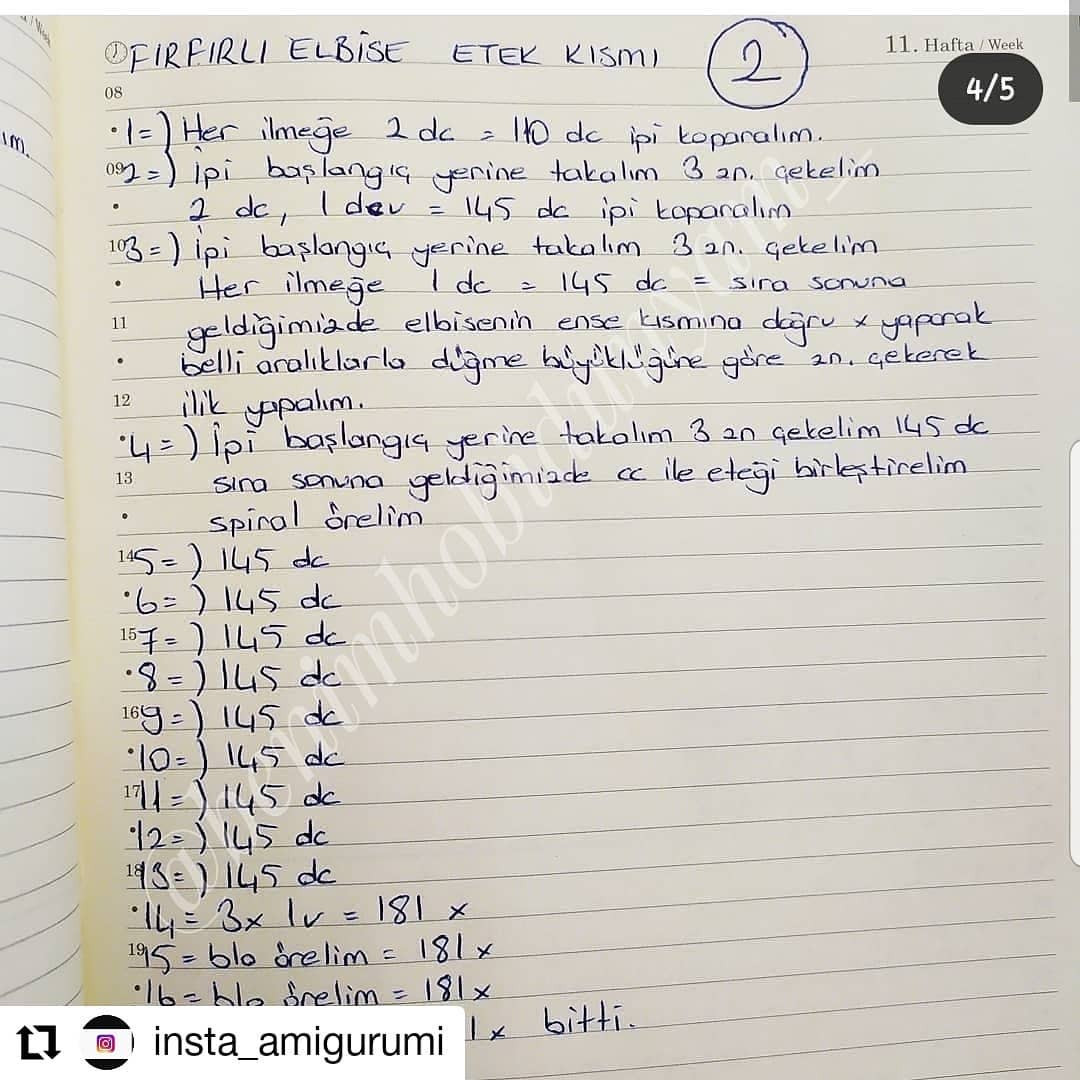 ① FIRFIRLI ELBİSE ETEK KISMI 2
11. Hafta / Week
4/5
08
1=) Her ilmeğe 2 dc = 110 dc ipi koparalım.
ım.
09 2=) İpi başlangıç yerine takalım 3 zn. çekelim
2 dc, 1 dcv = 145 dc ipi koparalım
10 3=) İpi başlangıç yerine takalım 3 zn. çekelim
Her ilmeğe 1 dc = 145 dc = sıra sonuna
11 geldiğimizde elbisenin ense kısmına doğru x yaparak
belli aralıklarla düğme büyüklüğüne göre zn. çekerek
12 ilik yapalım.
4=) İpi başlangıç yerine takalım 3 zn çekelim 145 dc
13 sıra sonuna geldiğimizde cc ile eteği birleştirelim
spiral örelim
14 5=) 145 dc
6=) 145 dc
15 7=) 145 dc
8=) 145 dc
16 9=) 145 dc
10=) 145 dc
17 11=) 145 dc
12=) 145 dc
18 13=) 145 dc
14= 3x 1v = 181 x
19 15= blo örelim = 181 x
16= blo örelim = 181 x
1 x bitti.
@benimhobidunyam_
insta_amigurumi